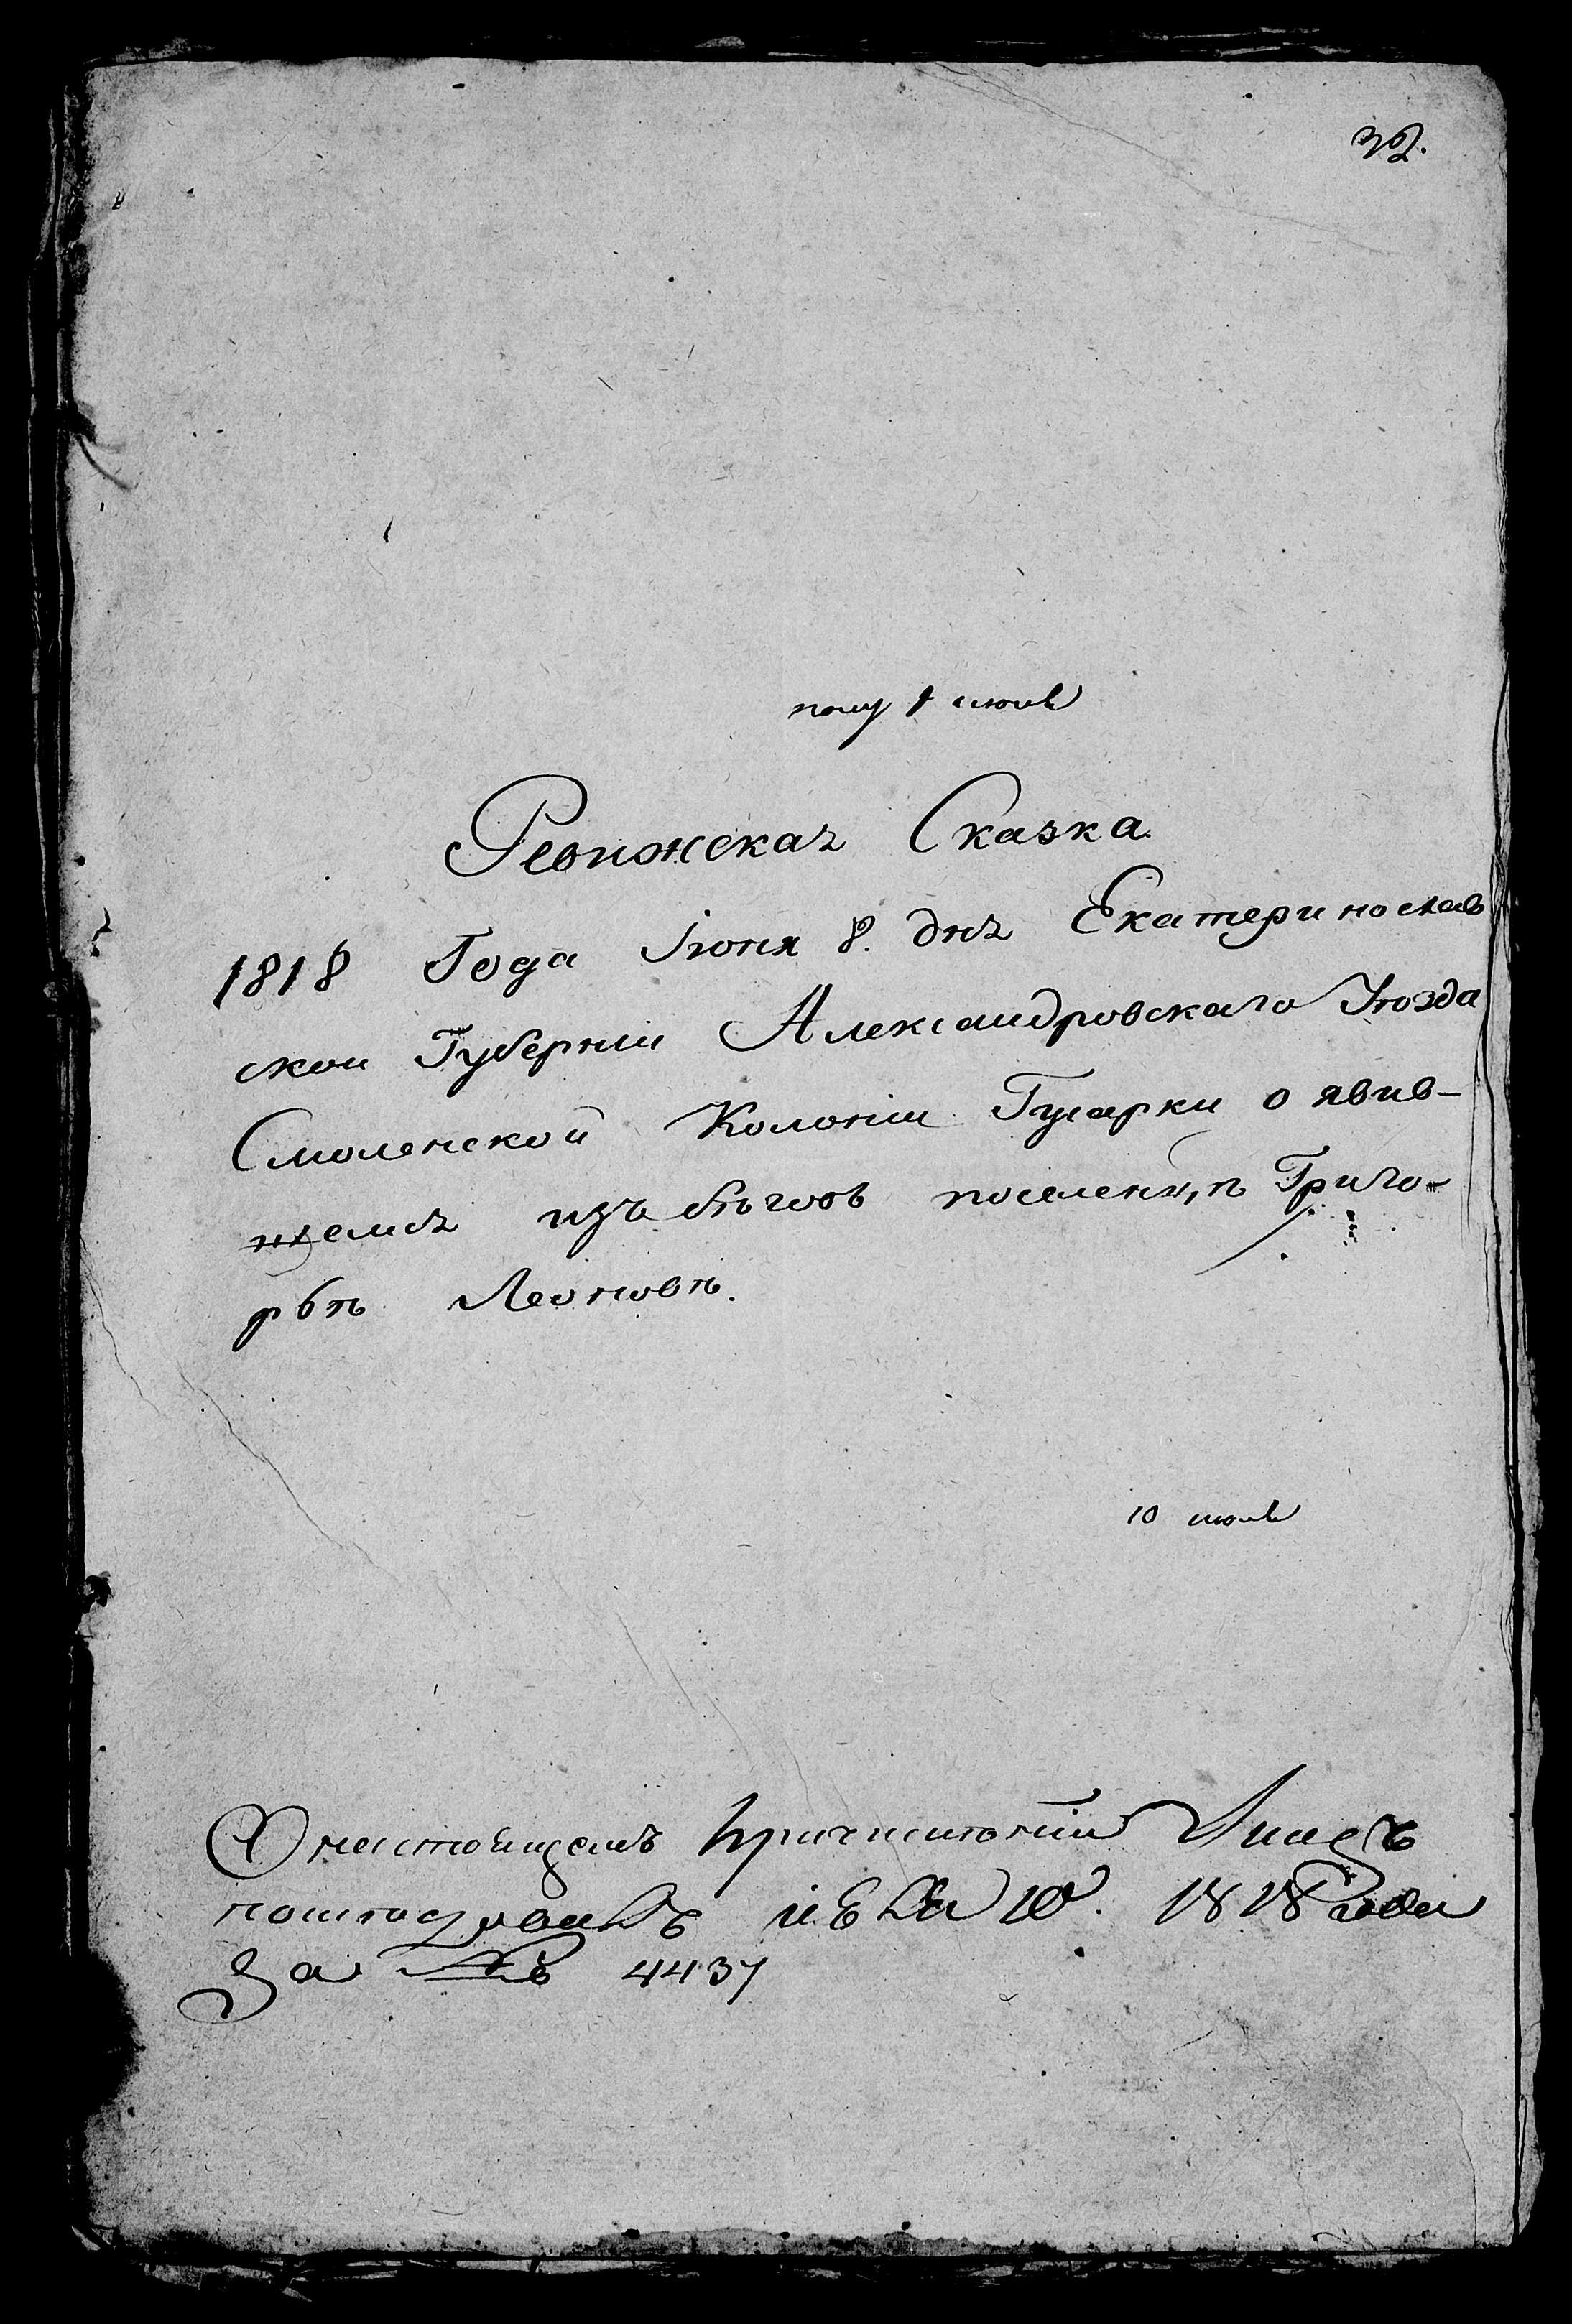 32.
полу 9 июня
Ревижская Сказка
1818 Года Іюня 8. дня Екатеринослав
ской Губерніи Александровскаго Уѣзда
Смоленской Колоніи Гусарки о явив-
шемся изъ бѣговъ поселенцѣ Григо-
рьѣ Леоновѣ.
10 июня
О настоящемъ причисленіи Указъ
10. 1818 года
За № 4437